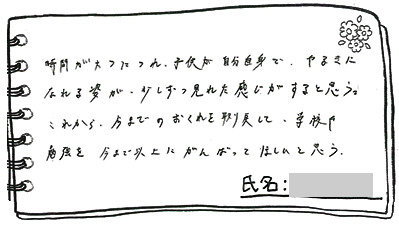 時間がたつにつれ、子供が自分自身で、やるきに
なれる姿が、少しずつ見れた感じがすると思う。
これから、今までのおくれを取り戻して、学校や
勉強を今まで以上にがんばってほしいと思う。
氏名: